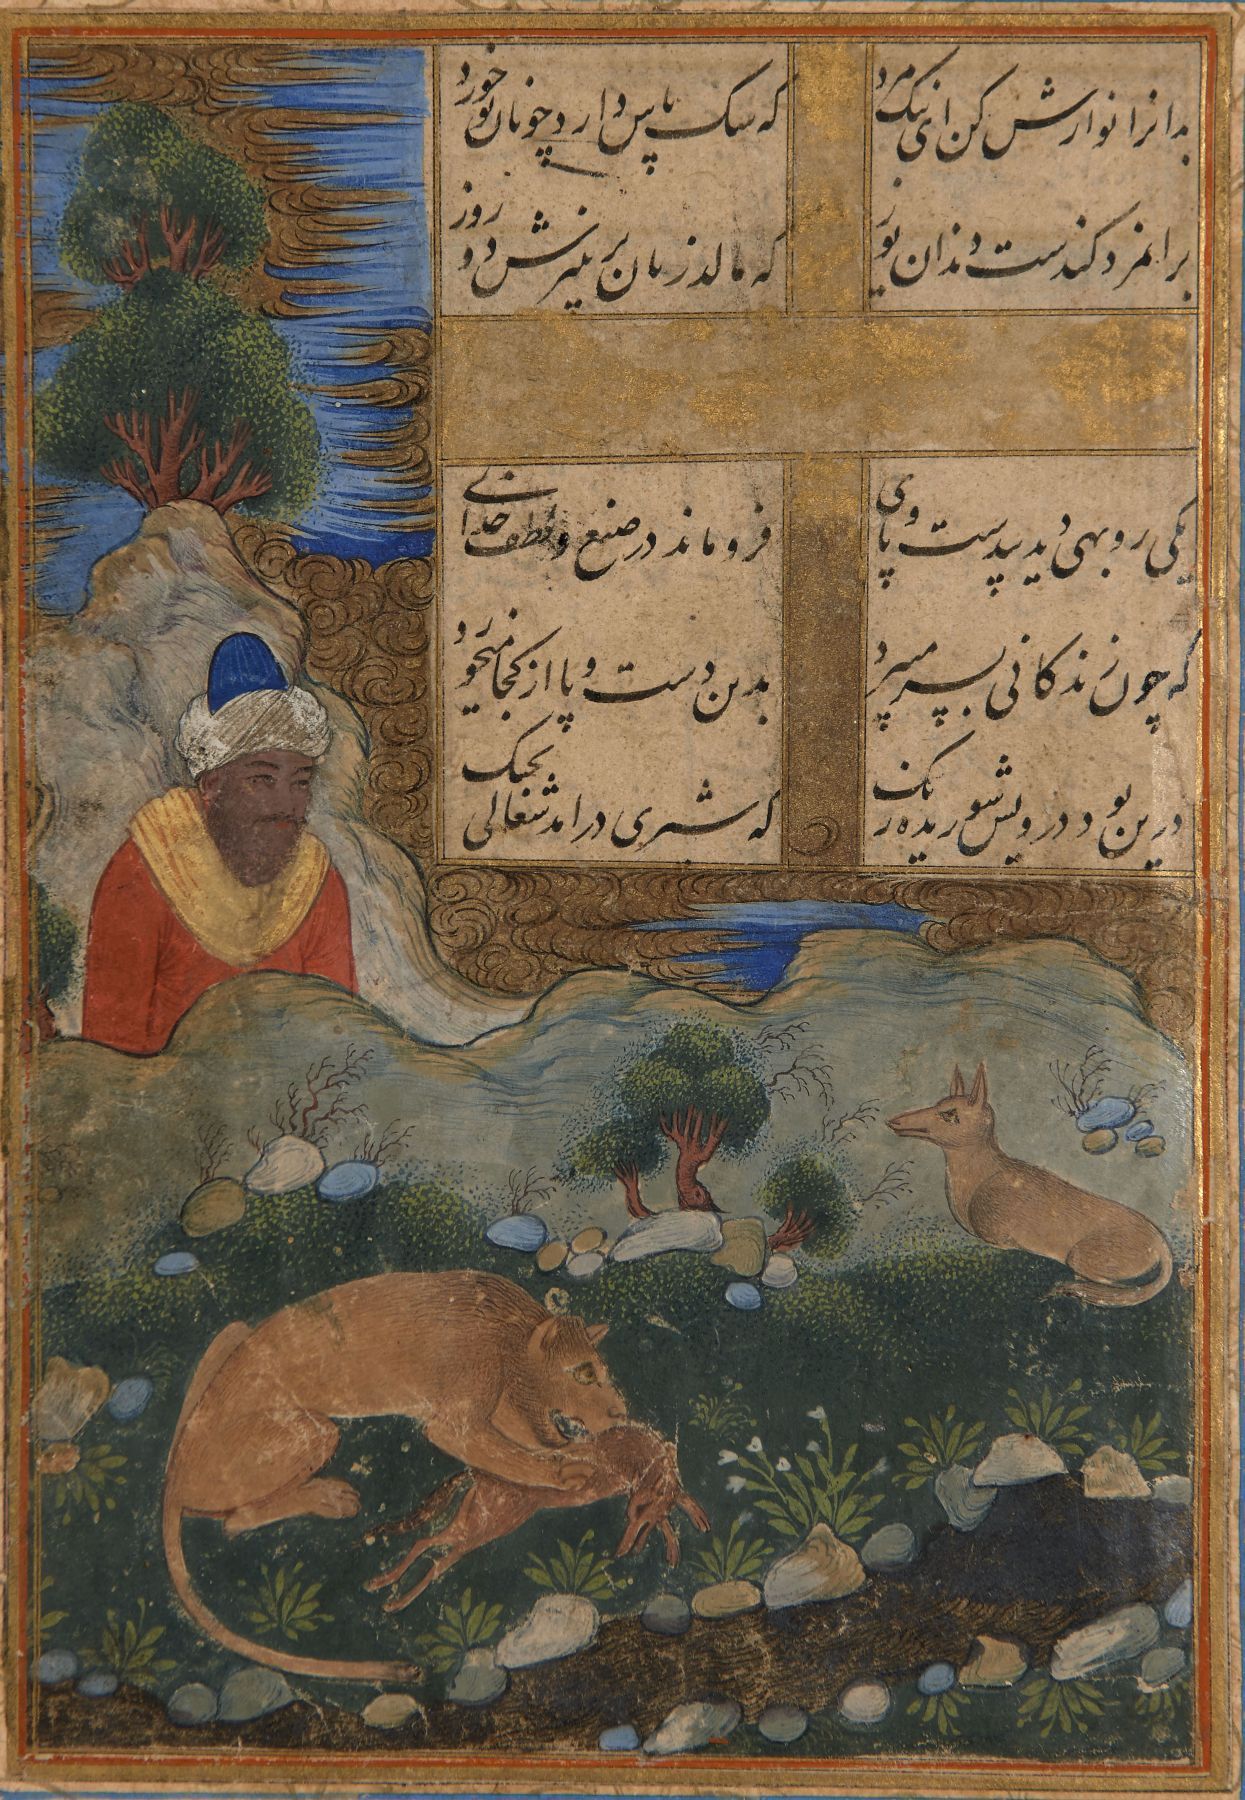 بدانرا نوازش کن ای نیک مرد که سگ پاس دارد چو نان تو خورد
برانمرد کندست دندان یوز که مالد زبان بر پنیرش دو روز
یکی روبهی دید بیدست و پای فرو ماند در صنع و لطف خدای
که چون زندگانی بسر میبرد بدین دست و پا از کجا میخورد
درین بود درویش شوریده رنک که شیری درامد شغالی بچنک